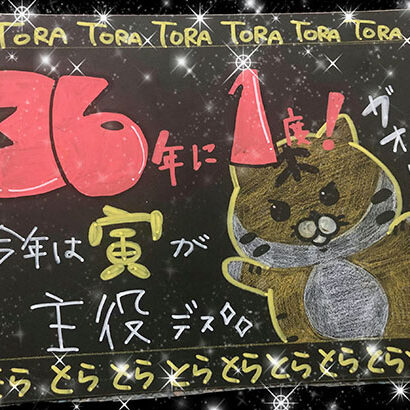 TORA TORA TORA TORA TORA TORA
36年に1度!
ガオー
今年は寅が
主役デス
とら とら とら とら とら とら とら